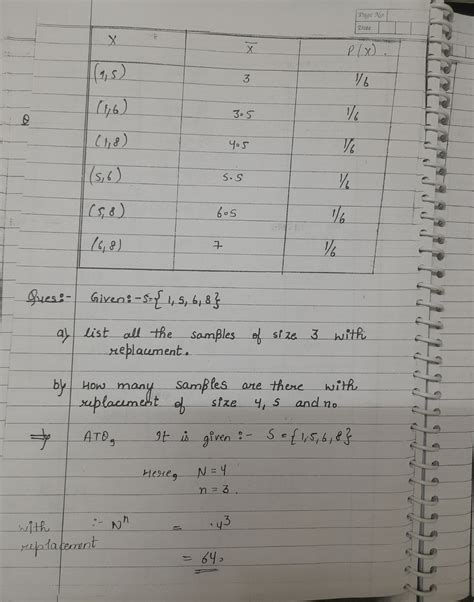 Page No.
Date
X x̄ P(x).
(1,5) 3 1/6
(1,6) 3.5 1/6
(1,8) 4.5 1/6
(5,6) 5.5 1/6
(5,8) 6.5 1/6
(6,8) 7 1/6
Ques:- Given:- S={1,5,6,8}
a) list all the samples of size 3 with
replacment.
b) How many samples are there with
replacment of size 4, 5 and n.
⇒ ATQ, It is given :- S = {1,5,6,8}
Here, N = 4
n = 3.
with :- Nⁿ = 4³
replacement
= 64.